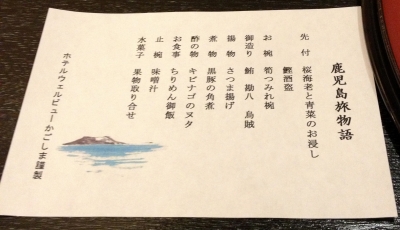 鹿児島旅物語
先付 桜海老と青菜のお浸し
鰹酒盗
お椀 筍つみれ椀
御造り 鮪 勘八 烏賊
揚物 さつま揚げ
煮物 黒豚の角煮
酢の物 キビナゴのヌタ
お食事 ちりめん御飯
止椀 味噌汁
水菓子 果物取り合せ
ホテルウェルビューかごしま謹製